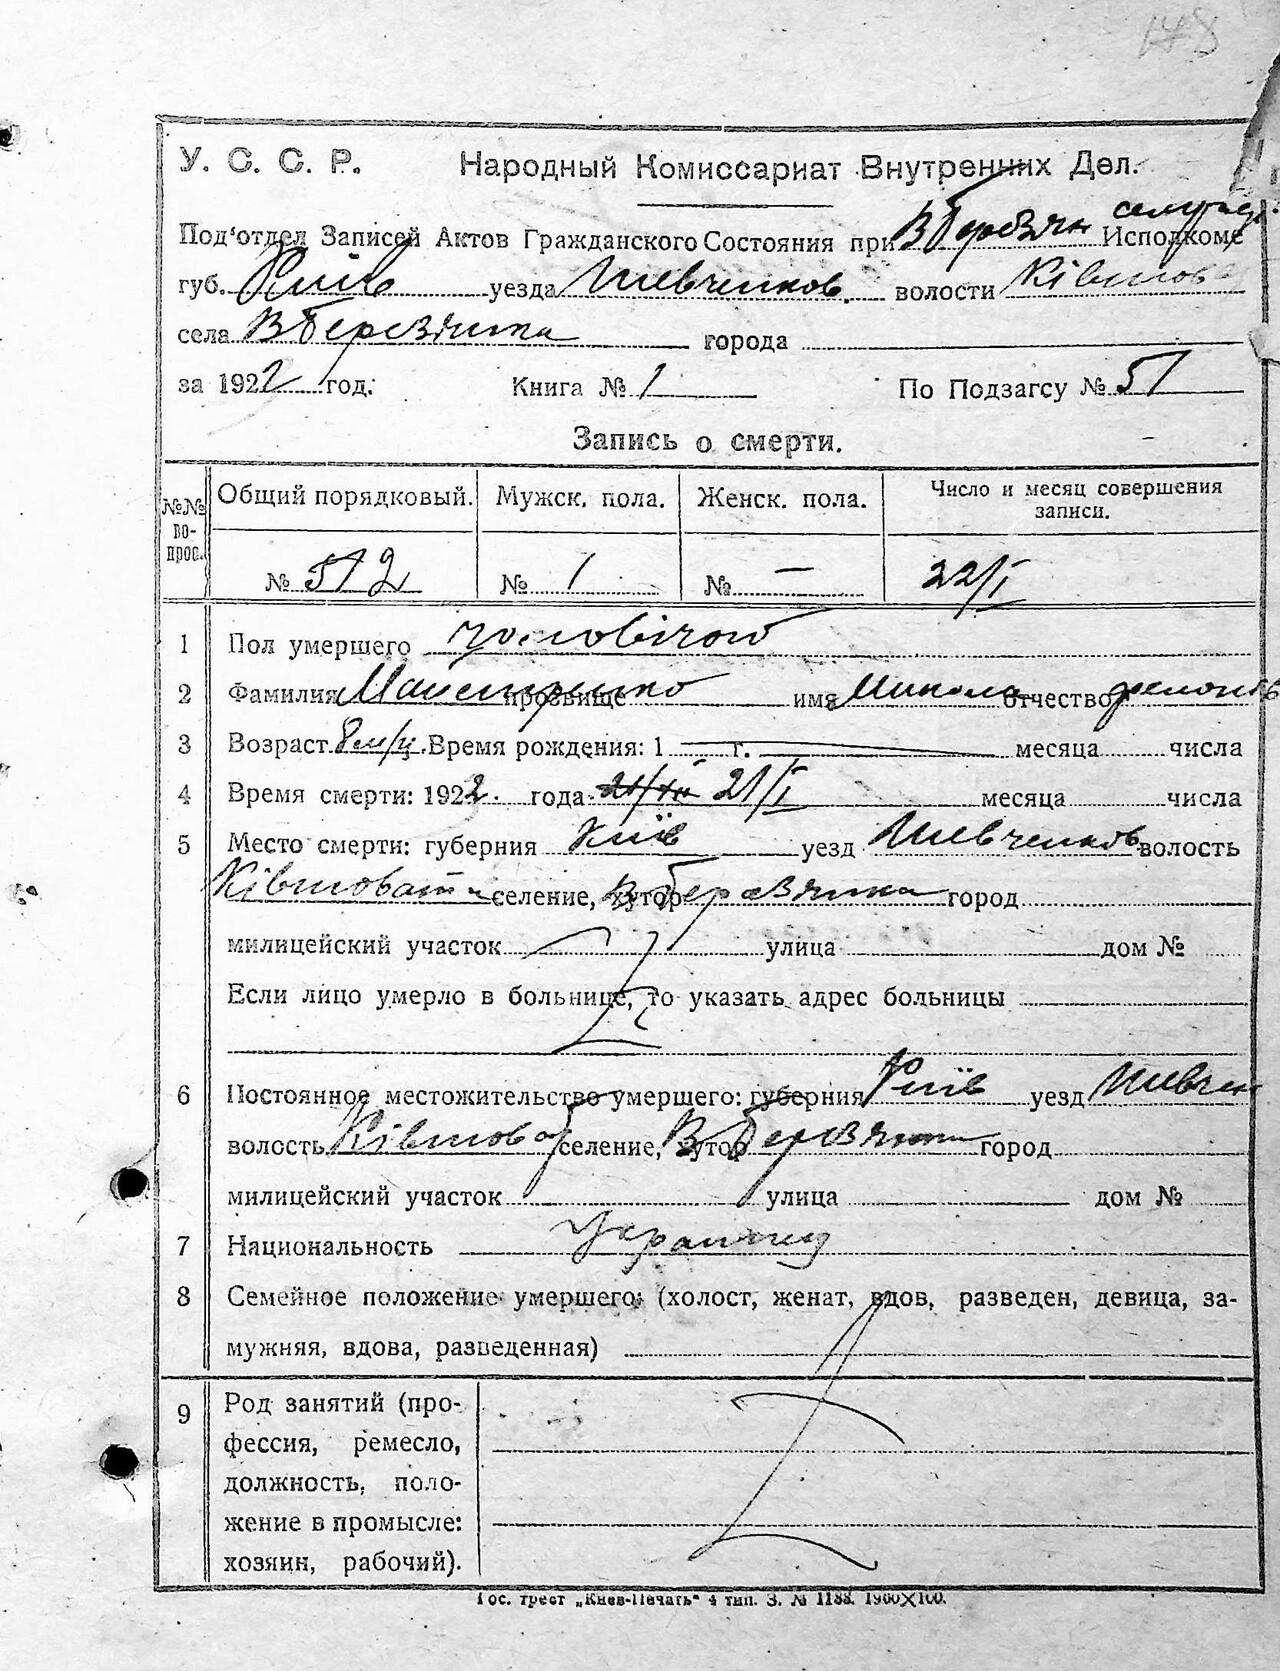 148
У. С. С. Р. Народный Комиссариат Внутренних Дел.
Под‘отдел Записей Актов Гражданского Состояния при В Березян Исполкоме
губ. Київ уезда Шевченков. волости Ківшов
села В Березянка города
за 1922 год. Книга № 1 По Подзагсу № 51
Запись о смерти.
№№ во- прос. Общий порядковый. Мужск. пола. Женск. пола. Число и месяц совершения записи.
№ 512 № 1 № — 22/I
1 Пол умершего чоловічой
2 Фамилия Майстренко прозвище имя Микола отчество
3 Возраст 8 м/ц. Время рождения: 1 г. месяца числа
4 Время смерти: 1922. года 21/I месяца числа
5 Место смерти: губерния Київ уезд Шевченков волость
Ківшовата селение, хутор В Березянка город
милицейский участок улица дом №
Если лицо умерло в больнице, то указать адрес больницы
6 Постоянное местожительство умершего: губерния Київ уезд Шевчен
волость Ківшоват селение, хутор В Березянка город
милицейский участок улица дом №
7 Национальность Українец
8 Семейное положение умершего: (холост, женат, вдов, разведен, девица, за-
мужняя, вдова, разведенная)
9 Род занятий (про-
фессия, ремесло,
должность, поло-
жение в промысле:
хозяин, рабочий).
Гос. трест „Киев-Печать“ 4 тип. З. № 1188. 1900Х100.